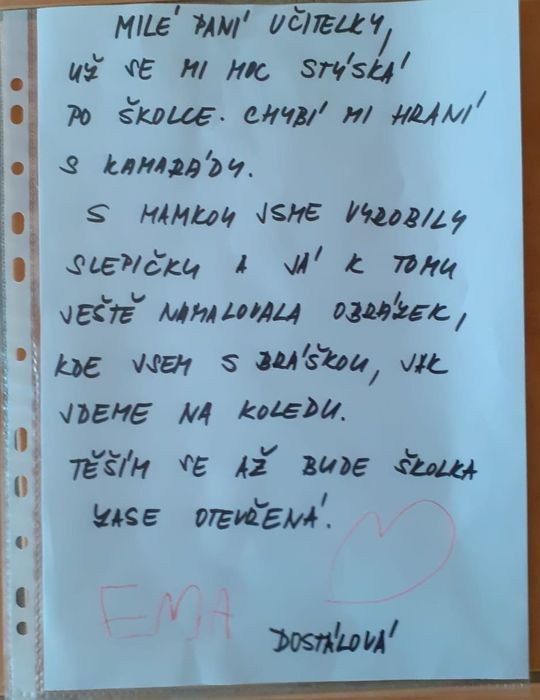 MILÉ PANÍ UČITELKY,
UŽ SE MI MOC STÝSKÁ
PO ŠKOLCE. CHYBÍ MI HRANÍ
S KAMARÁDY.
S MAMKOU JSME VYROBILY
SLEPIČKU A JÁ K TOMU
JEŠTĚ NAMALOVALA OBRÁZEK,
KDE JSEM S BRÁŠKOU, JAK
JDEME NA KOLEDU.
TĚŠÍM SE AŽ BUDE ŠKOLKA
ZASE OTEVŘENÁ.
EMA
DOSTÁLOVÁ